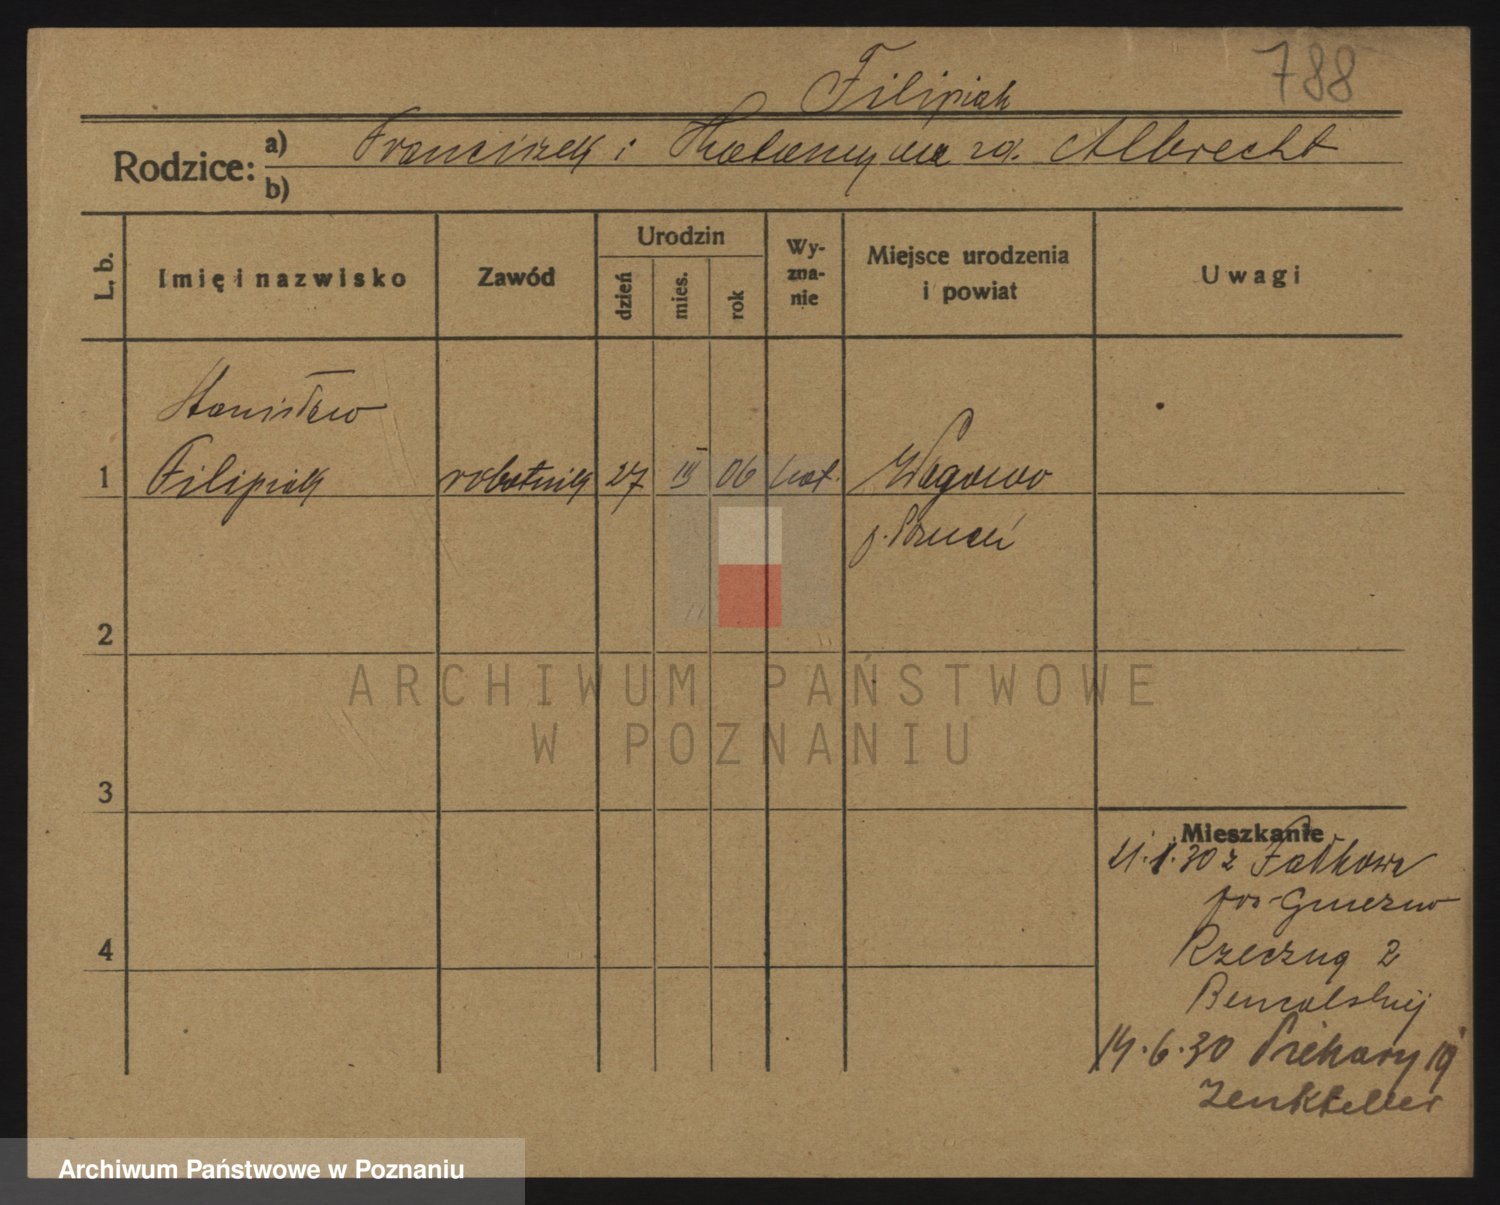 788
Filipiak
Rodzice: a) Franciszek i Katarzyna zd. Albrecht
b)
L. b.
Imię i nazwisko
Zawód
Urodzin
dzień
mies.
rok
Wy-
zna-
nie
Miejsce urodzenia
i powiat
Uwagi
Stanisław
1 Filipiak robotnik 27 III 06 kat. Węgowo
p.
2
ARCHIWUM PAŃSTWOWE
W POZNANIU
3
Mieszkanie
21.1.30 z Fałkowa
pow Gniezno
Rzeczna 2
14.6.30 Piekary 19
Zenkteler
4
Archiwum Państwowe w Poznaniu